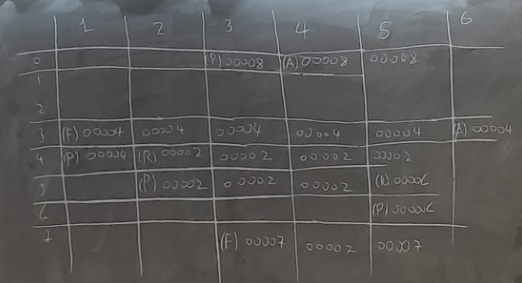 1 2 3 4 5 6
0 (P) 00008 (A) 00008 00008
1
2
3 (F) 00004 00004 00004 00004 00004 (A) 00004
4 (P) 00004 (R) 00002 00002 00002 00002
5 (P) 00002 00002 00002 (R) 00006
6 (P) 00006
7 (F) 00007 00007 00007